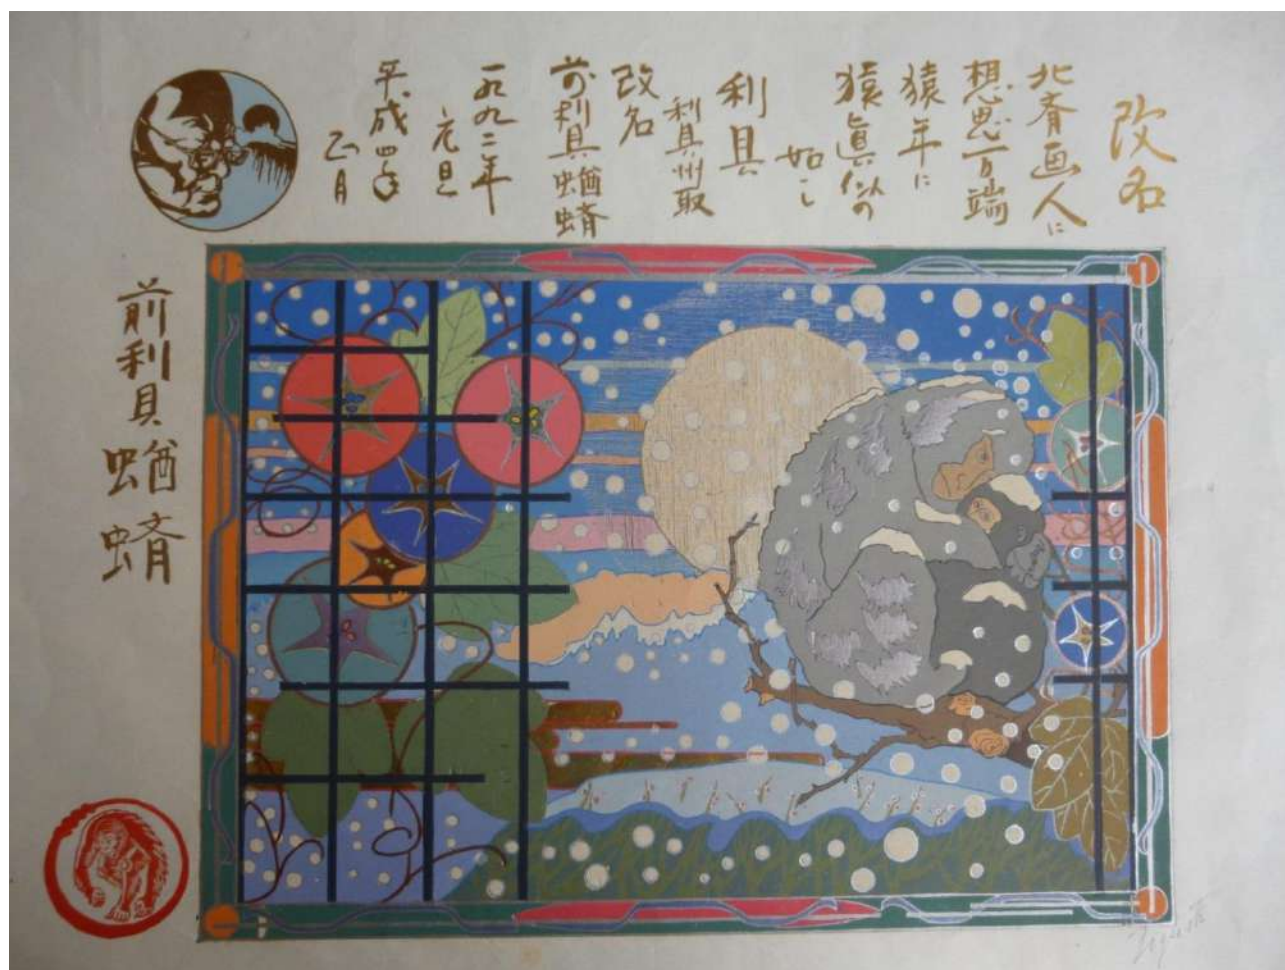 改名
北斉画人に
想思百端
猿年に
猿眞似の
如し
利貝
利貝州取
改名
前利貝蝤蜻
一九九二年
元旦
平成四年
正月
前利貝蝤蜻